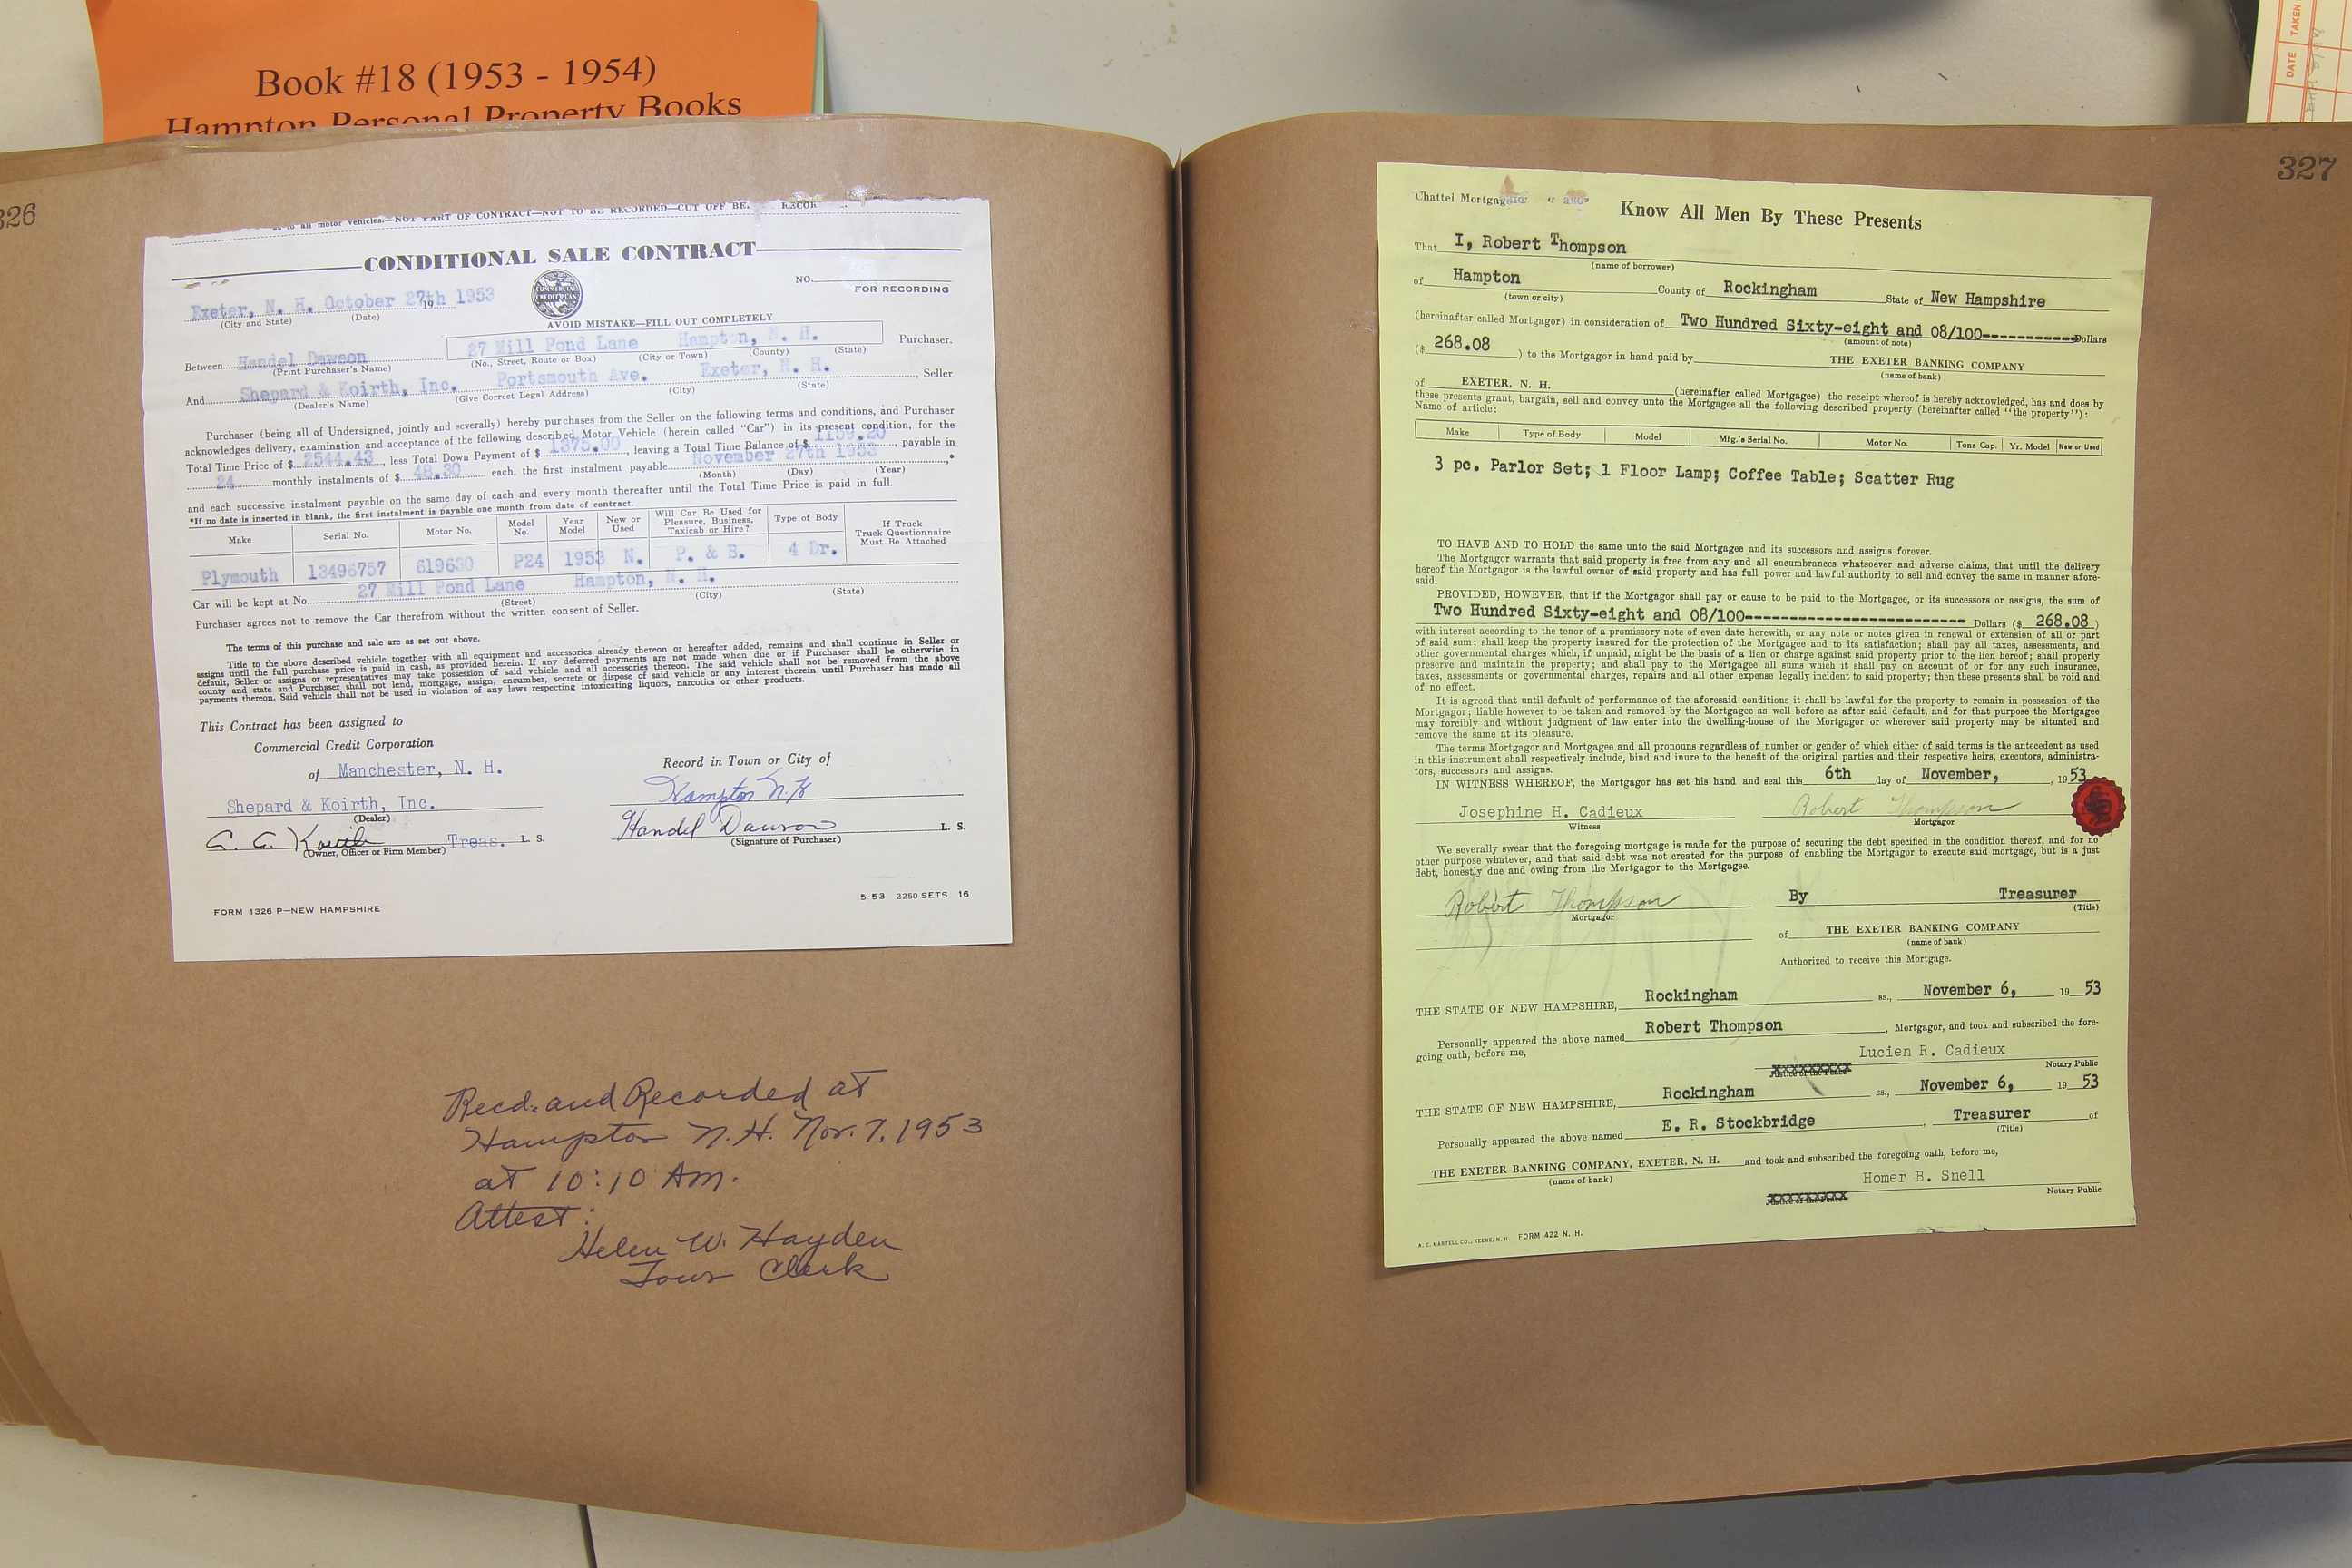 Book #18 (1953 - 1954)
Hampton Personal Property Books
DATE TAKEN
326
as to all motor vehicles.—NOT PART OF CONTRACT—NOT TO BE RECORDED—CUT OFF BE. RECOR
CONDITIONAL SALE CONTRACT
COMMERCIAL CREDIT PLAN
NO.
FOR RECORDING
Exeter, N. H. October 27th 1953
19
(City and State) (Date)
AVOID MISTAKE—FILL OUT COMPLETELY
Between Handel Dawson 27 Mill Pond Lane Hampton, N. H. Purchaser.
(Print Purchaser's Name) (No., Street, Route or Box) (City or Town) (County) (State)
And Shepard & Koirth, Inc. Portsmouth Ave. Exeter, N. H. , Seller
(Dealer's Name) (Give Correct Legal Address) (City) (State)
Purchaser (being all of Undersigned, jointly and severally) hereby purchases from the Seller on the following terms and conditions, and Purchaser
acknowledges delivery, examination and acceptance of the following described Motor Vehicle (herein called "Car") in its present condition, for the
Total Time Price of $ 2544.43, less Total Down Payment of $ 1375.00, leaving a Total Time Balance of $ 1159.20, payable in
24 monthly instalments of $ 48.30 each, the first instalment payable November 27th 1953.*
(Month) (Day) (Year)
and each successive instalment payable on the same day of each and every month thereafter until the Total Time Price is paid in full.
*If no date is inserted in blank, the first instalment is payable one month from date of contract.
Make Serial No. Motor No. Model No. Year Model New or Used Will Car Be Used for Pleasure, Business, Taxicab or Hire? Type of Body If Truck Truck Questionnaire Must Be Attached
Plymouth 13496757 619630 P24 1953 N. P. & B. 4 Dr.
Car will be kept at No. 27 Mill Pond Lane Hampton, N. H.
(Street) (City) (State)
Purchaser agrees not to remove the Car therefrom without the written consent of Seller.
The terms of this purchase and sale are as set out above.
Title to the above described vehicle together with all equipment and accessories already thereon or hereafter added, remains and shall continue in Seller or
assigns until the full purchase price is paid in cash, as provided herein. If any deferred payments are not made when due or if Purchaser shall be otherwise in
default, Seller or assigns or representatives may take possession of said vehicle and all accessories thereon. The said vehicle shall not be removed from the above
county and state and Purchaser shall not lend, mortgage, assign, encumber, secrete or dispose of said vehicle or any interest therein until Purchaser has made all
payments thereon. Said vehicle shall not be used in violation of any laws respecting intoxicating liquors, narcotics or other products.
This Contract has been assigned to
Commercial Credit Corporation
of Manchester, N. H.
Record in Town or City of
Hampton N.H
Shepard & Koirth, Inc.
(Dealer)
Handel Dawson L. S.
(Signature of Purchaser)
Treas. L. S.
(Owner, Officer or Firm Member)
FORM 1326 P—NEW HAMPSHIRE
5-53 2250 SETS 16
Recd. and Recorded at
Hampton N.H. Nov. 7, 1953
at 10:10 Am.
Attest:
Helen W. Hayden
Town Clerk
327
Chattel Mortgag
Know All Men By These Presents
That I, Robert Thompson
(name of borrower)
of Hampton County of Rockingham State of New Hampshire
(town or city)
(hereinafter called Mortgagor) in consideration of Two Hundred Sixty-eight and 08/100-----------Dollars
(amount of note)
($ 268.08 ) to the Mortgagor in hand paid by THE EXETER BANKING COMPANY
(name of bank)
of EXETER, N. H. (hereinafter called Mortgagee) the receipt whereof is hereby acknowledged, has and does by
these presents grant, bargain, sell and convey unto the Mortgagee all the following described property (hereinafter called "the property"):
Name of article:
Make Type of Body Model Mfg.'s Serial No. Motor No. Tons Cap. Yr. Model New or Used
3 pc. Parlor Set; 1 Floor Lamp; Coffee Table; Scatter Rug
TO HAVE AND TO HOLD the same unto the said Mortgagee and its successors and assigns forever.
The Mortgagor warrants that said property is free from any and all encumbrances whatsoever and adverse claims, that until the delivery
hereof the Mortgagor is the lawful owner of said property and has full power and lawful authority to sell and convey the same in manner afore-
said.
PROVIDED, HOWEVER, that if the Mortgagor shall pay or cause to be paid to the Mortgagee, or its successors or assigns, the sum of
Two Hundred Sixty-eight and 08/100------------------------- Dollars ($ 268.08 )
with interest according to the tenor of a promissory note of even date herewith, or any note or notes given in renewal or extension of all or part
of said sum; shall keep the property insured for the protection of the Mortgagee and to its satisfaction; shall pay all taxes, assessments, and
other governmental charges which, if unpaid, might be the basis of a lien or charge against said property prior to the lien hereof; shall properly
preserve and maintain the property; and shall pay to the Mortgagee all sums which it shall pay on account of or for any such insurance,
taxes, assessments or governmental charges, repairs and all other expense legally incident to said property; then these presents shall be void and
of no effect.
It is agreed that until default of performance of the aforesaid conditions it shall be lawful for the property to remain in possession of the
Mortgagor; liable however to be taken and removed by the Mortgagee as well before as after said default, and for that purpose the Mortgagee
may forcibly and without judgment of law enter into the dwelling-house of the Mortgagor or wherever said property may be situated and
remove the same at its pleasure.
The terms Mortgagor and Mortgagee and all pronouns regardless of number or gender of which either of said terms is the antecedent as used
in this instrument shall respectively include, bind and inure to the benefit of the original parties and their respective heirs, executors, administra-
tors, successors and assigns.
IN WITNESS WHEREOF, the Mortgagor has set his hand and seal this 6th day of November, , 1953
Josephine H. Cadieux Robert Thompson
Witness Mortgagor
We severally swear that the foregoing mortgage is made for the purpose of securing the debt specified in the condition thereof, and for no
other purpose whatever, and that said debt was not created for the purpose of enabling the Mortgagor to execute said mortgage, but is a just
debt, honestly due and owing from the Mortgagor to the Mortgagee.
Robert Thompson By Treasurer
Mortgagor (Title)
of THE EXETER BANKING COMPANY
(name of bank)
Authorized to receive this Mortgage.
THE STATE OF NEW HAMPSHIRE, Rockingham ss., November 6, 19 53
Personally appeared the above named Robert Thompson , Mortgagor, and took and subscribed the fore-
going oath, before me,
Lucien R. Cadieux
Justice of the Peace Notary Public
THE STATE OF NEW HAMPSHIRE, Rockingham ss., November 6, 19 53
Personally appeared the above named E. R. Stockbridge , Treasurer of
(Title)
THE EXETER BANKING COMPANY, EXETER, N. H. and took and subscribed the foregoing oath, before me,
(name of bank)
Homer B. Snell
Justice of the Peace Notary Public
A. E. MARTELL CO., KEENE, N. H. FORM 422 N. H.